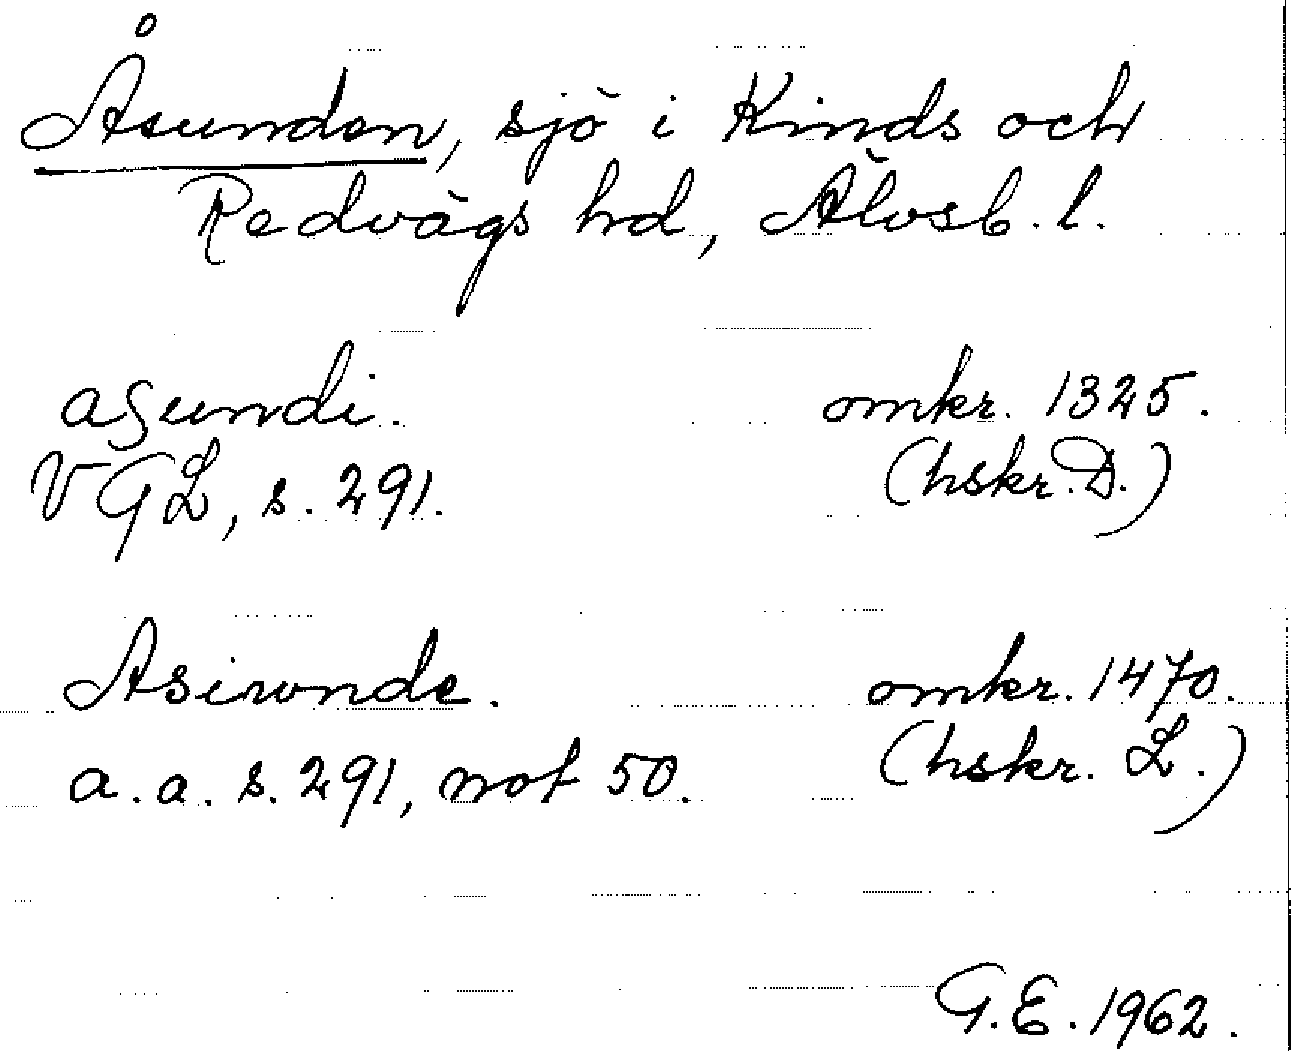 Åsunden, sjö i Kinds och
Redvägs hd, Älvsb. l.
asundi. omkr. 1325.
VGL, s. 291. (hskr. D.)
Asiwnde. omkr. 1470.
a. a. s. 291, not 50. (hskr. L.)
G. E. 1962.